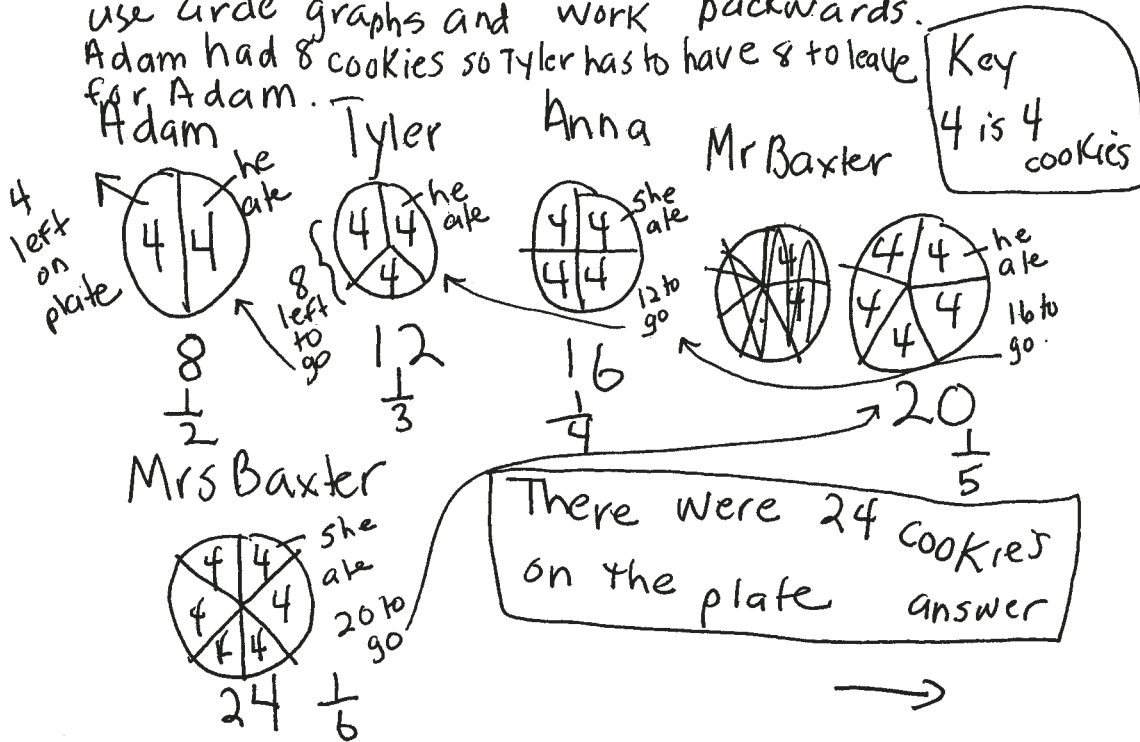 use circle graphs and work backwards.
Adam had 8 cookies so Tyler has to have 8 to leave
for Adam.
Key
4 is 4
cookies
Adam
he
ate
4
left
on
plate
4 4
8
1/2
Tyler
he
ate
4 4
4
8
left
to
go
12
1/3
Anna
she
ate
4 4
4 4
12 to
go
16
1/4
Mr Baxter
4
4
he
ate
4 4
4 4
4
16 to
go.
20
1/5
Mrs Baxter
she
ate
4 4
4 4
4 4
20 to
go
24 1/6
There were 24 cookies
on the plate answer